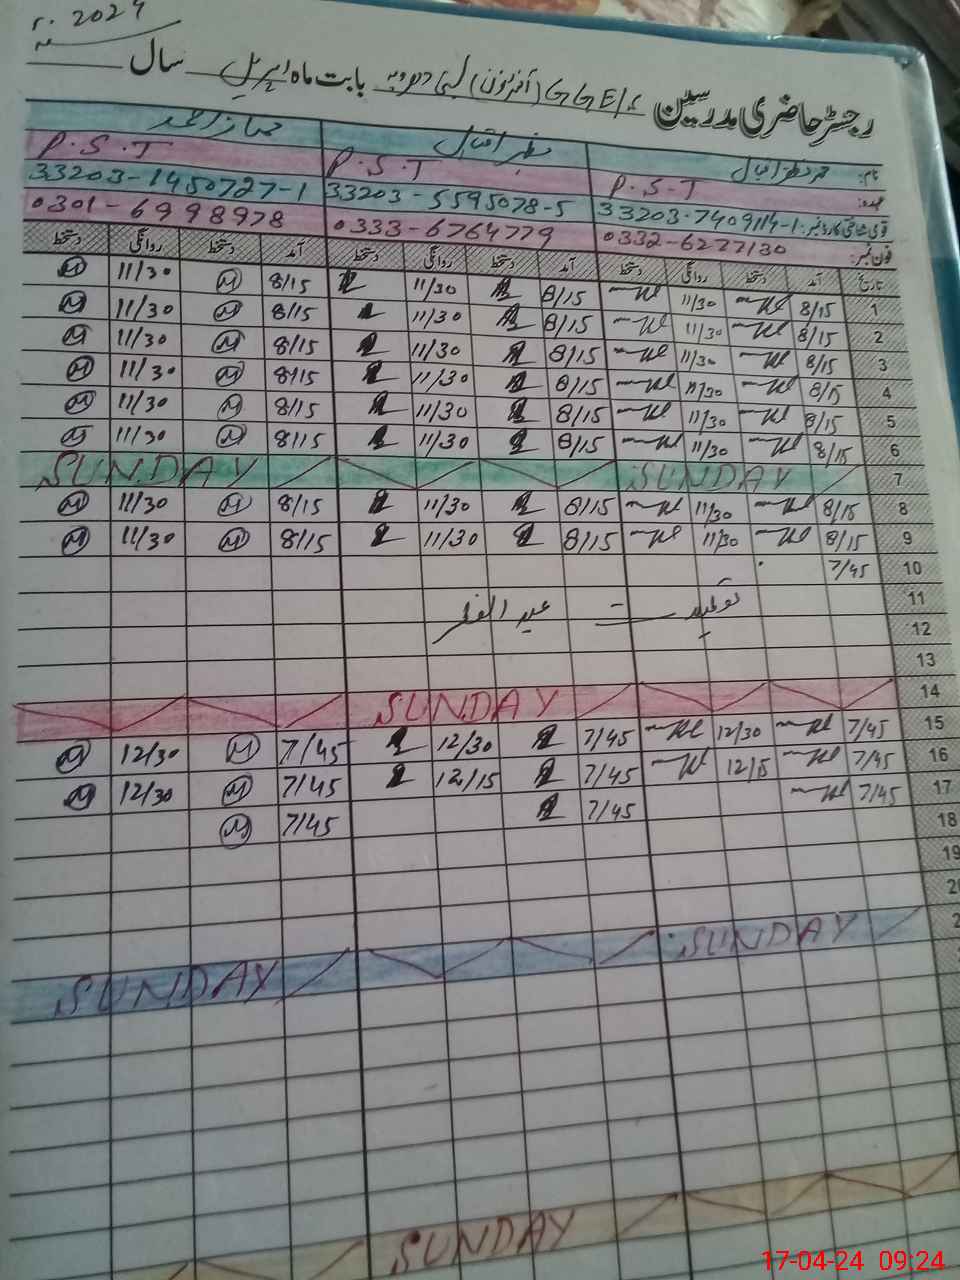 2024
رجسٹر حاضری مدرسین GGE/S (آفٹرنون) بستی بابت ماہ اپریل سال
نام: اقبال اقبال ممتاز احمد
عہدہ: P.S.T P.S.T P.S.T
قومی شناختی کارڈ نمبر: 33203-7409114-1 33203-5595078-5 33203-1450727-1
فون نمبر: 0332-6277130 0333-6764779 0301-6998978
تاریخ آمد دستخط روانگی دستخط آمد دستخط روانگی دستخط آمد دستخط روانگی دستخط
1 8/15 11/30 8/15 11/30 8/15 M 11/30 M
2 8/15 11/30 8/15 11/30 8/15 M 11/30 M
3 8/15 11/30 8/15 11/30 8/15 M 11/30 M
4 8/15 11/30 8/15 11/30 8/15 M 11/30 M
5 8/15 11/30 8/15 11/30 8/15 M 11/30 M
6 8/15 11/30 8/15 11/30 8/15 M 11/30 M
7 SUNDAY SUNDAY
8 8/15 11/30 8/15 11/30 8/15 M 11/30 M
9 8/15 11/30 8/15 11/30 8/15 M 11/30 M
10 7/45
11 تعطیلات عید الفطر
12
13
14 SUNDAY
15 7/45 12/30 7/45 12/30 7/45 M 12/30 M
16 7/45 12/15 7/45 12/15 7/45 M 12/30 M
17 7/45 7/45 7/45 M
18
19
SUNDAY SUNDAY
SUNDAY
17-04-24 09:24